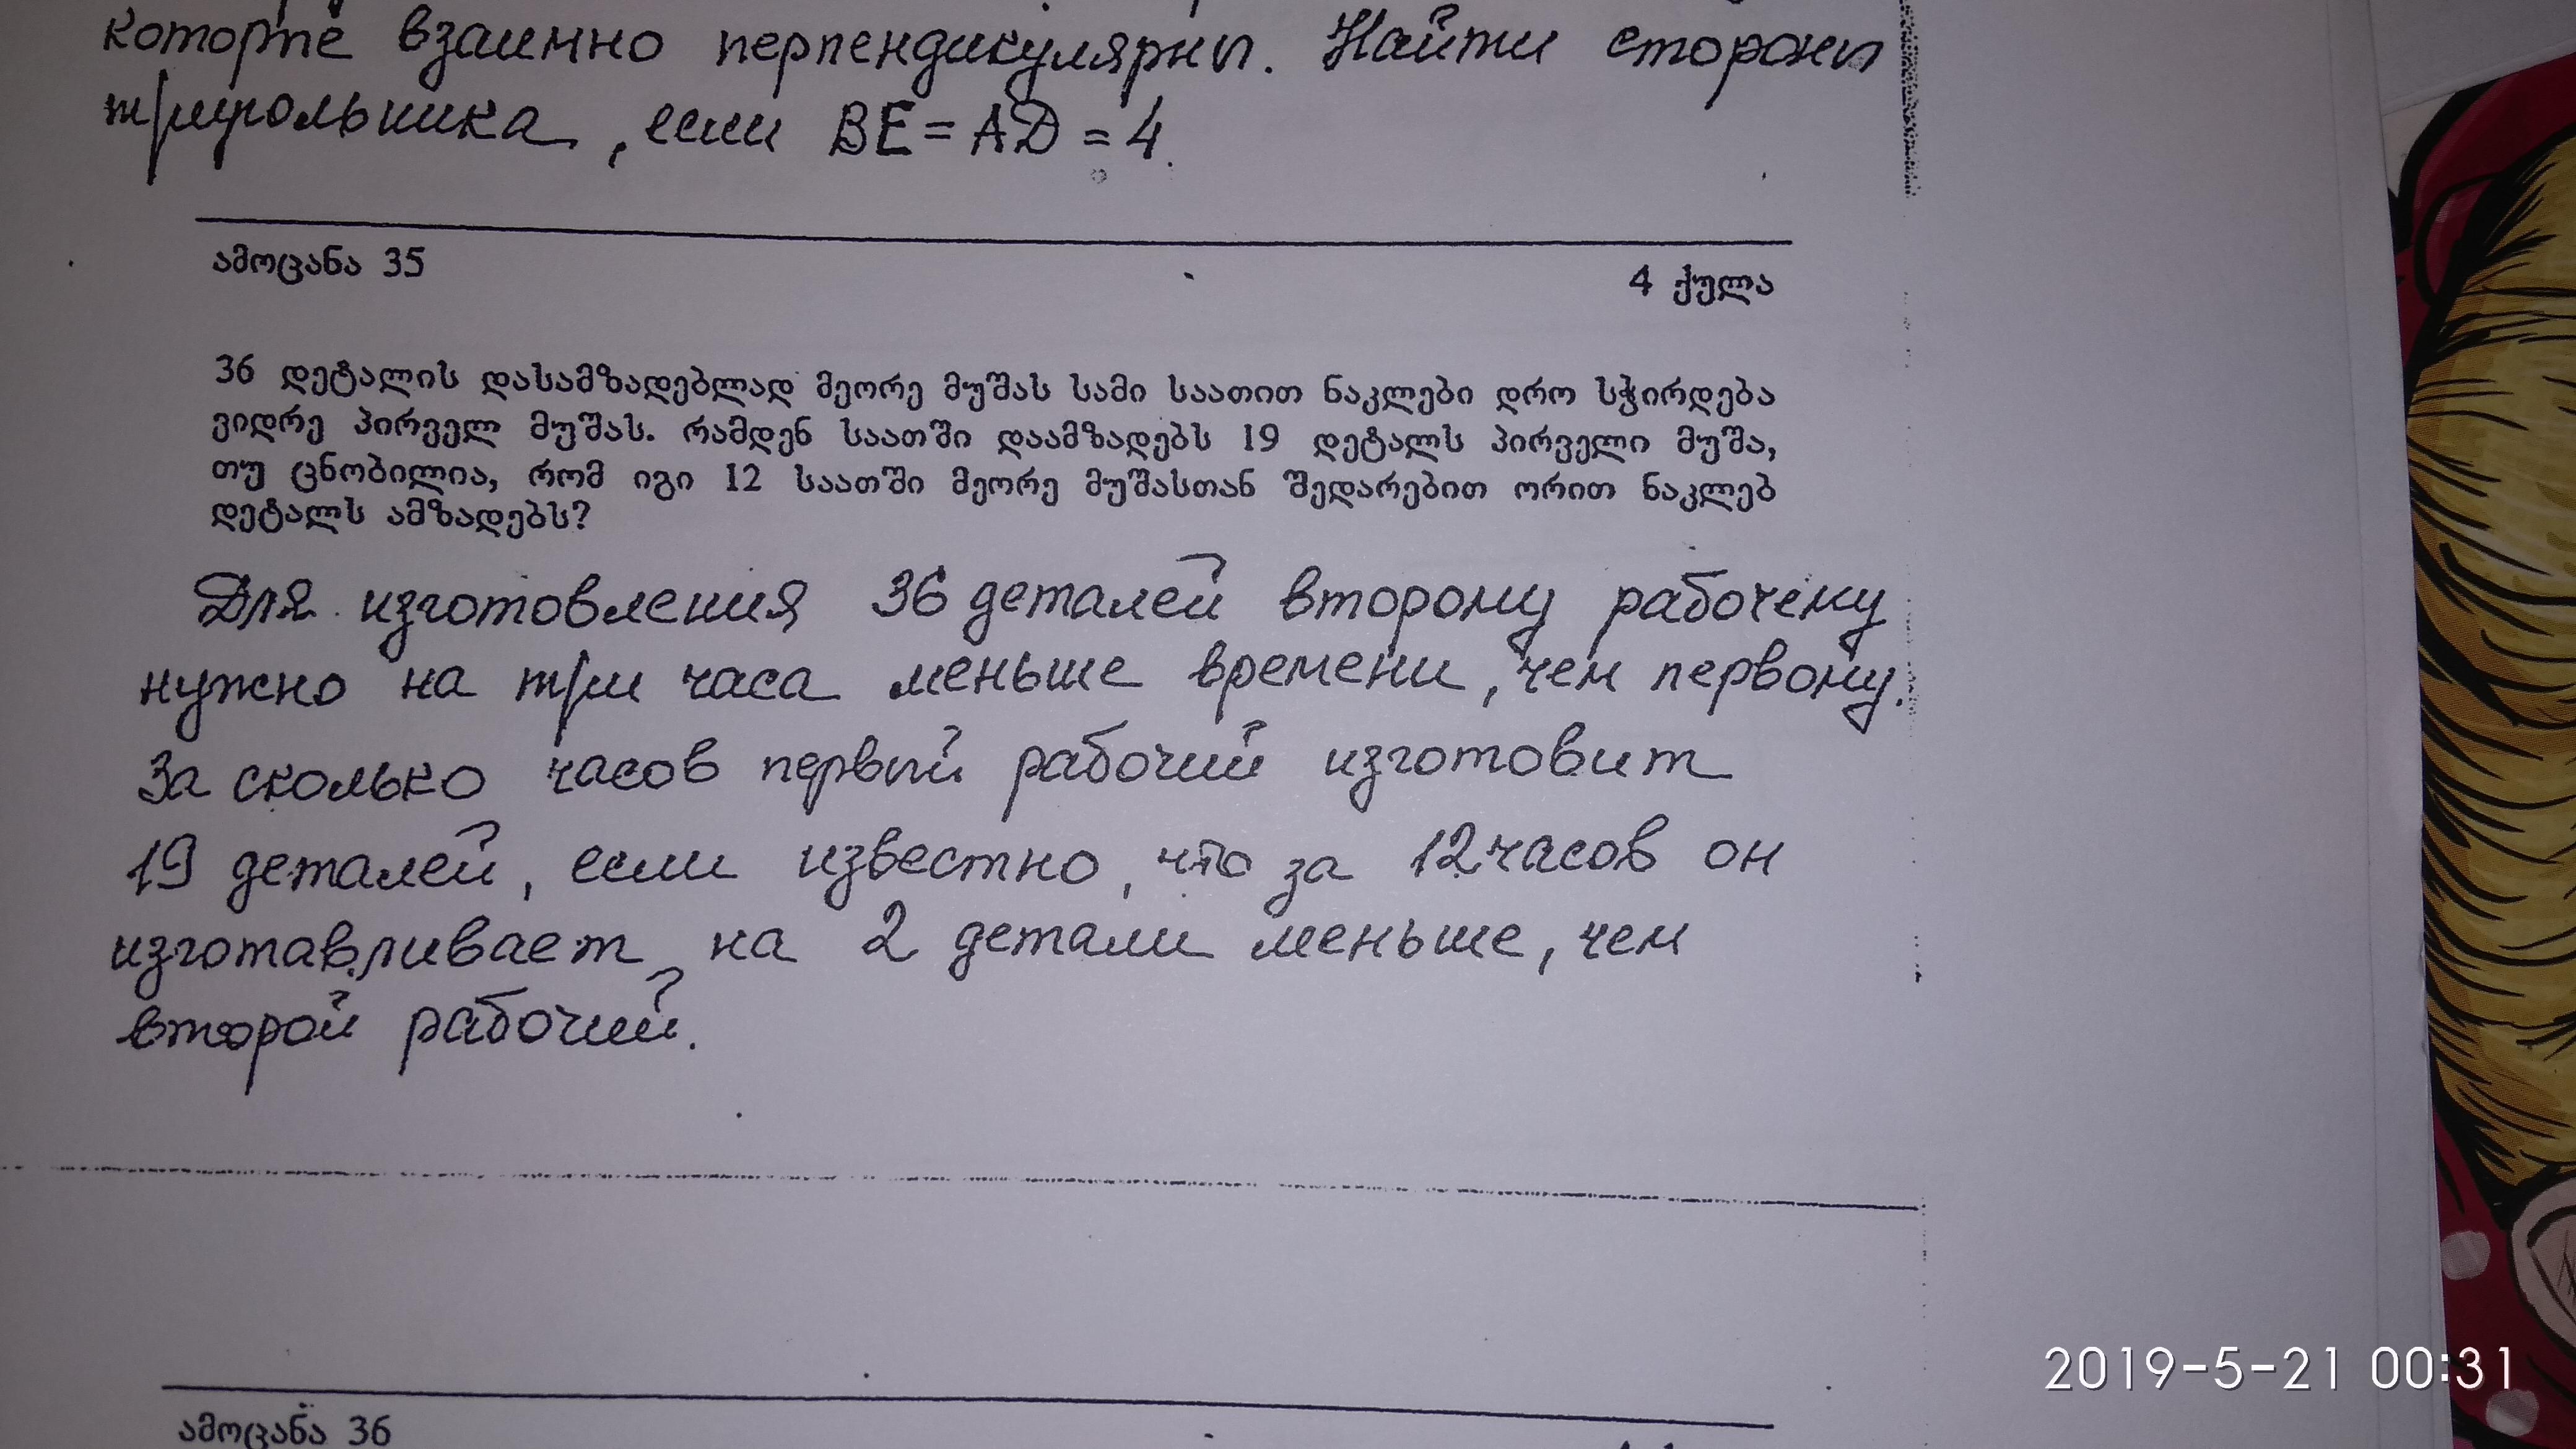 которые взаимно перпендикулярны. Найти стороны
треугольника, если BE = AD = 4.
ამოცანა 35
4 ქულა
36 დეტალის დასამზადებლად მეორე მუშას სამი საათით ნაკლები დრო სჭირდება
ვიდრე პირველ მუშას. რამდენ საათში დაამზადებს 19 დეტალს პირველი მუშა,
თუ ცნობილია, რომ იგი 12 საათში მეორე მუშასთან შედარებით ორით ნაკლებ
დეტალს ამზადებს?
Для изготовления 36 деталей второму рабочему
нужно на три часа меньше времени, чем первому.
За сколько часов первый рабочий изготовит
19 деталей, если известно, что за 12 часов он
изготавливает на 2 детали меньше, чем
второй рабочий.
ამოცანა 36
2019-5-21 00:31